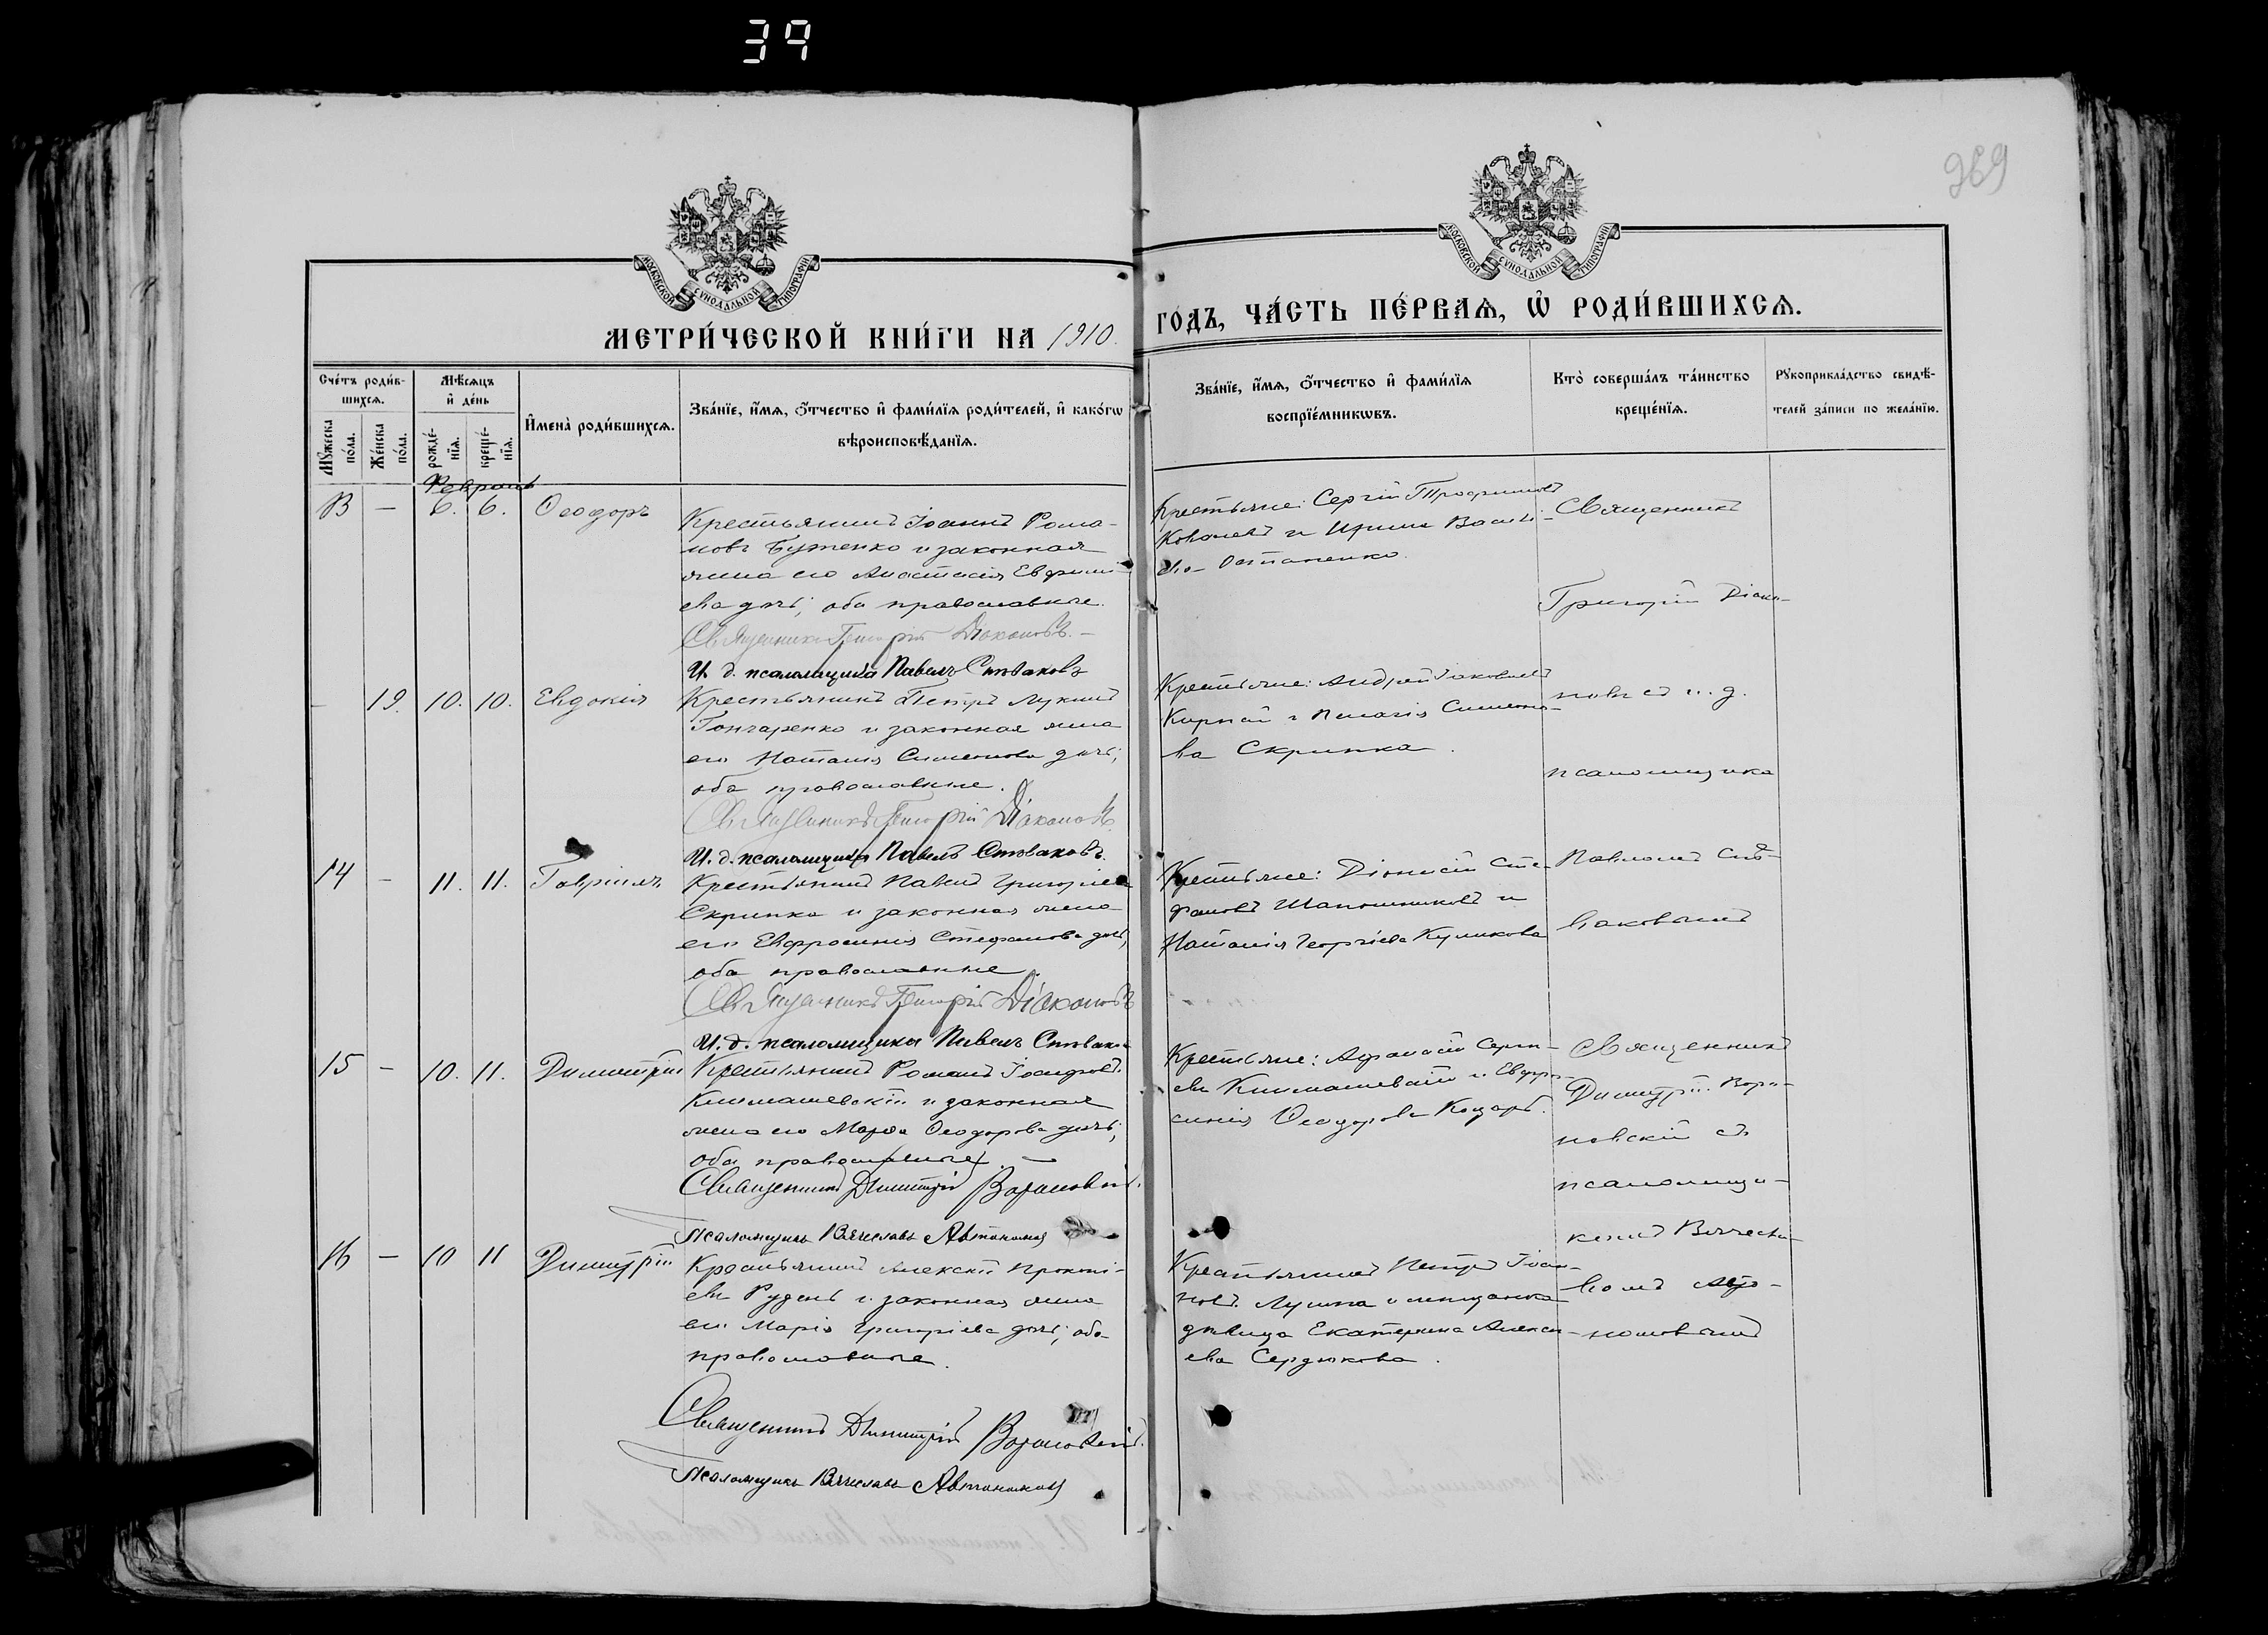 39
369
МОСКОВСКОЙ СУНОДАЛЬНОЙ ТИПОГРАФІИ
МОСКОВСКОЙ СУНОДАЛЬНОЙ ТИПОГРАФІИ
МЕТРИ́ЧЕСКОЙ КНИ́ГИ НА 1910.
ГО́ДЪ, ЧА́СТЬ ПЕ́РВАѦ, Ѡ҆ РОДИ́ВШИХСѦ.
Сче́тъ роди́в-
шихсѧ.
Мꙋ́жеска по́ла.
Же́нска по́ла.
Мѣ́сѧцъ
и҆ де́нь
рожде́-
нїѧ.
креще́-
нїѧ.
И҆мена̀ роди́вшихсѧ.
Зва́нїе, и҆́мѧ, ѻ҆́тчество и҆ фами́лїѧ роди́телей, и҆ како́гѡ
вѣроисповѣ́данїѧ.
Зва́нїе, и҆́мѧ, ѻ҆́тчество и҆ фами́лїѧ
воспрїе́мникѡвъ.
Кто̀ соверша́лъ та́инство
креще́нїѧ.
Рꙋкоприкла́дство свидѣ́-
телей за́писи по жела́нїю.
Февраль
13 — 6. 6. Ѳеодоръ
Крестьянинъ Іоаннъ Рома-
новъ Бутенко и законная
жена его Анастасія Евфимі-
ева дочь; оба православные.
Священникъ Григорій Діаконовъ. —
И. д. псаломщика Павелъ Стоваковъ
Крестьяне: Сергій Трофимовъ
Ковалевъ и Ирина Васи-
ва Остапенко.
Священникъ
Григорій Діако-
— 19. 10. 10. Евдокія
Крестьянинъ Петръ Лукинъ
Гончаренко и законная жена
его Наталія Симеонова дочь;
оба православные.
Священникъ Григорій Діаконовъ.
И. д. псаломщика Павелъ Стоваковъ.
Крестьяне: Андрей Іаковлевъ
Кирпай и Пелагія Симеоно-
ва Скрипка.
новъ съ и. д.
псаломщика
14 — 11. 11. Гавріилъ
Крестьянинъ Павелъ Григоріевъ
Скрипка и законная жена
его Евфросинія Стефанова дочь,
оба православные.
Священникъ Григорій Діаконовъ
И. д. псаломщика Павелъ Стоваковъ
Крестьяне: Діонисій Сте-
фановъ Шапошниковъ и
Наталія Георгіева Куликова
Павломъ Сто-
ваковымъ
15 — 10. 11. Димитрій
Крестьянинъ Романъ Іосифовъ
Климашевскій и законная
жена его Марѳа Ѳеодорова дочь;
оба православные. —
Священникъ Димитрій Вороновскій.
Псаломщикъ Вячеславъ Автономовъ
Крестьяне: Аѳанасій Серги-
евъ Климашевскій и Евфро-
синія Ѳеодорова Кощарь.
Священникъ
Димитрій Воро-
новскій съ
псаломщи-
комъ Вячесла-
16 — 10 11 Димитрій
Крестьянинъ Алексій Прокопі-
евъ Рудень и законная жена
его Марія Григоріева дочь; оба
православные.
Священникъ Димитрій Вороновскій.
Псаломщикъ Вячеславъ Автономовъ
Крестьянинъ Петръ Іоан-
новъ Лушпа и мещанка
дѣвица Екатерина Алексі-
ева Сердюкова.
вомъ Авто-
номовымъ